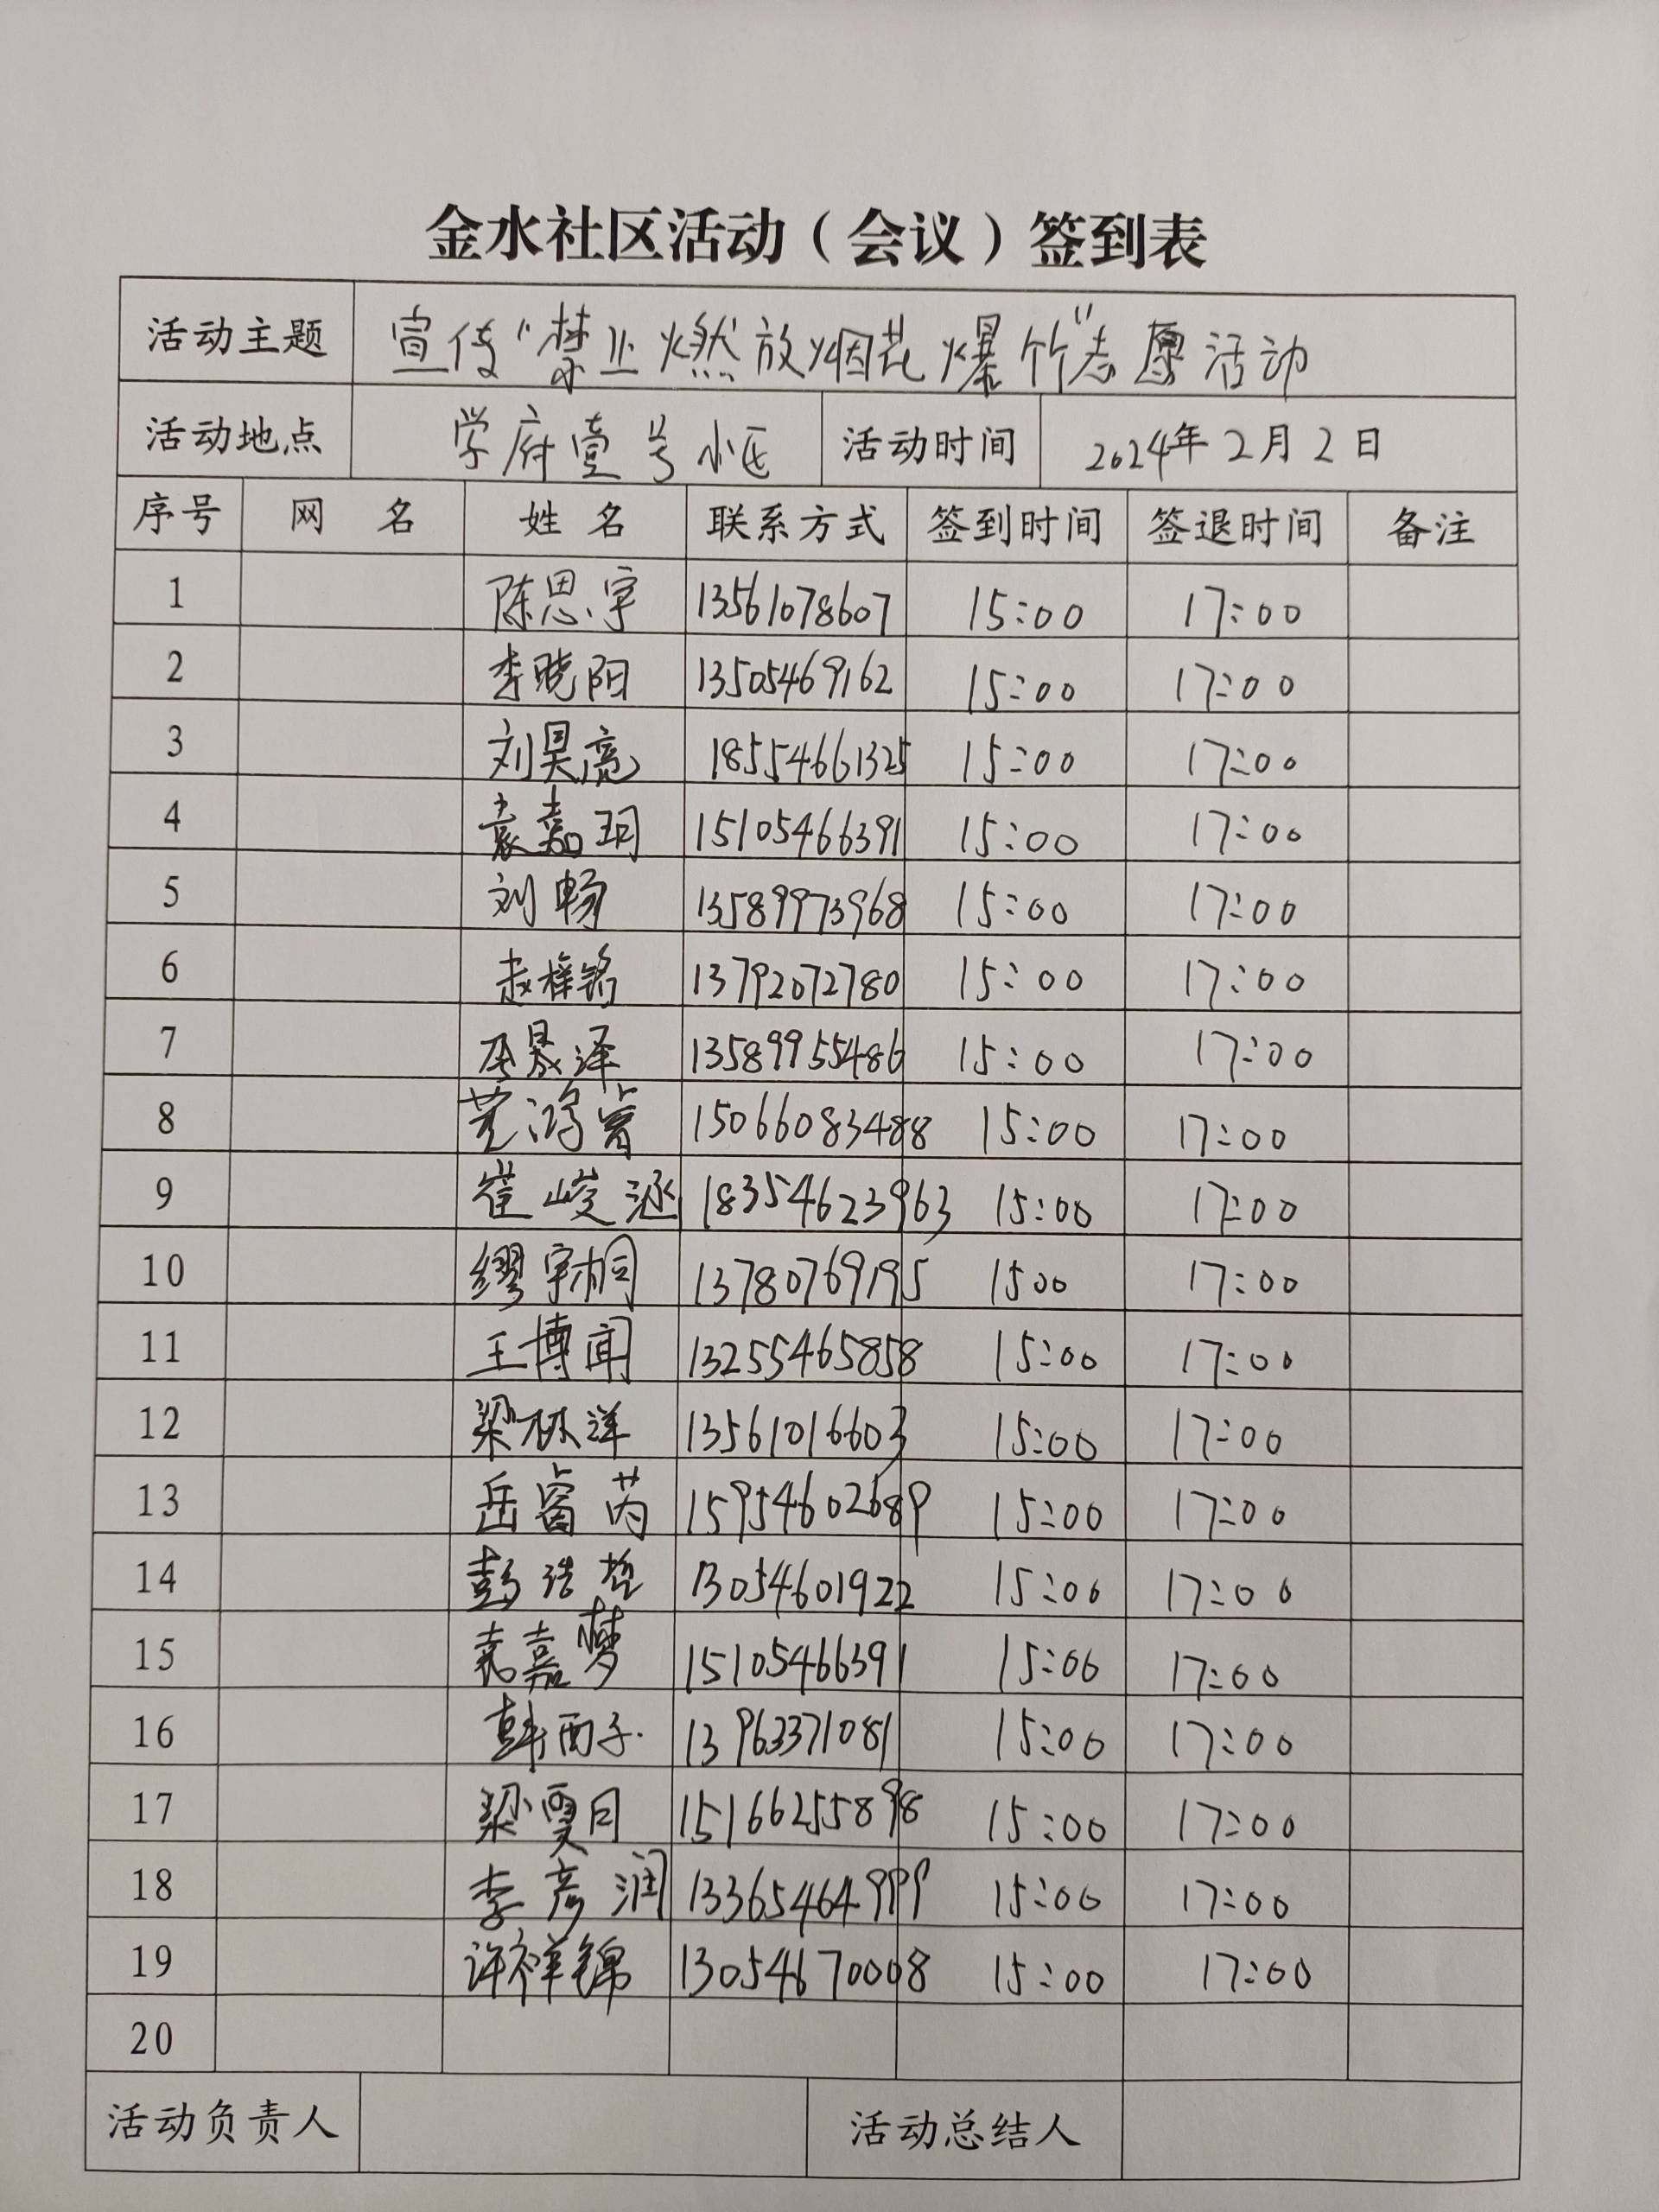 金水社区活动（会议）签到表
活动主题 宣传"禁止燃放烟花爆竹"志愿活动
活动地点 学府壹号小区 活动时间 2024年2月2日
序号 网 名 姓 名 联系方式 签到时间 签退时间 备注
1 陈思宇 13561078607 15:00 17:00
2 李晓阳 13505469162 15:00 17:00
3 刘昊亮 18554661325 15:00 17:00
4 袁嘉玥 15105466391 15:00 17:00
5 刘畅 13589973968 15:00 17:00
6 赵梓铭 13792072780 15:00 17:00
7 晟泽 13589955486 15:00 17:00
8 鸿睿 15066083488 15:00 17:00
9 崔峻涵 18354623963 15:00 17:00
10 缪宇桐 13780769195 1500 17:00
11 王博闻 13255465858 15:00 17:00
12 梁林洋 13561016603 15:00 17:00
13 岳睿芮 15954602689 15:00 17:00
14 彭浩哲 13054601922 15:00 17:00
15 袁嘉梦 15105466391 15:00 17:00
16 韩西子 13963371081 15:00 17:00
17 梁雯月 15166255898 15:00 17:00
18 李彦润 13365464999 15:00 17:00
19 许祥锦 13054670008 15:00 17:00
20
活动负责人 活动总结人